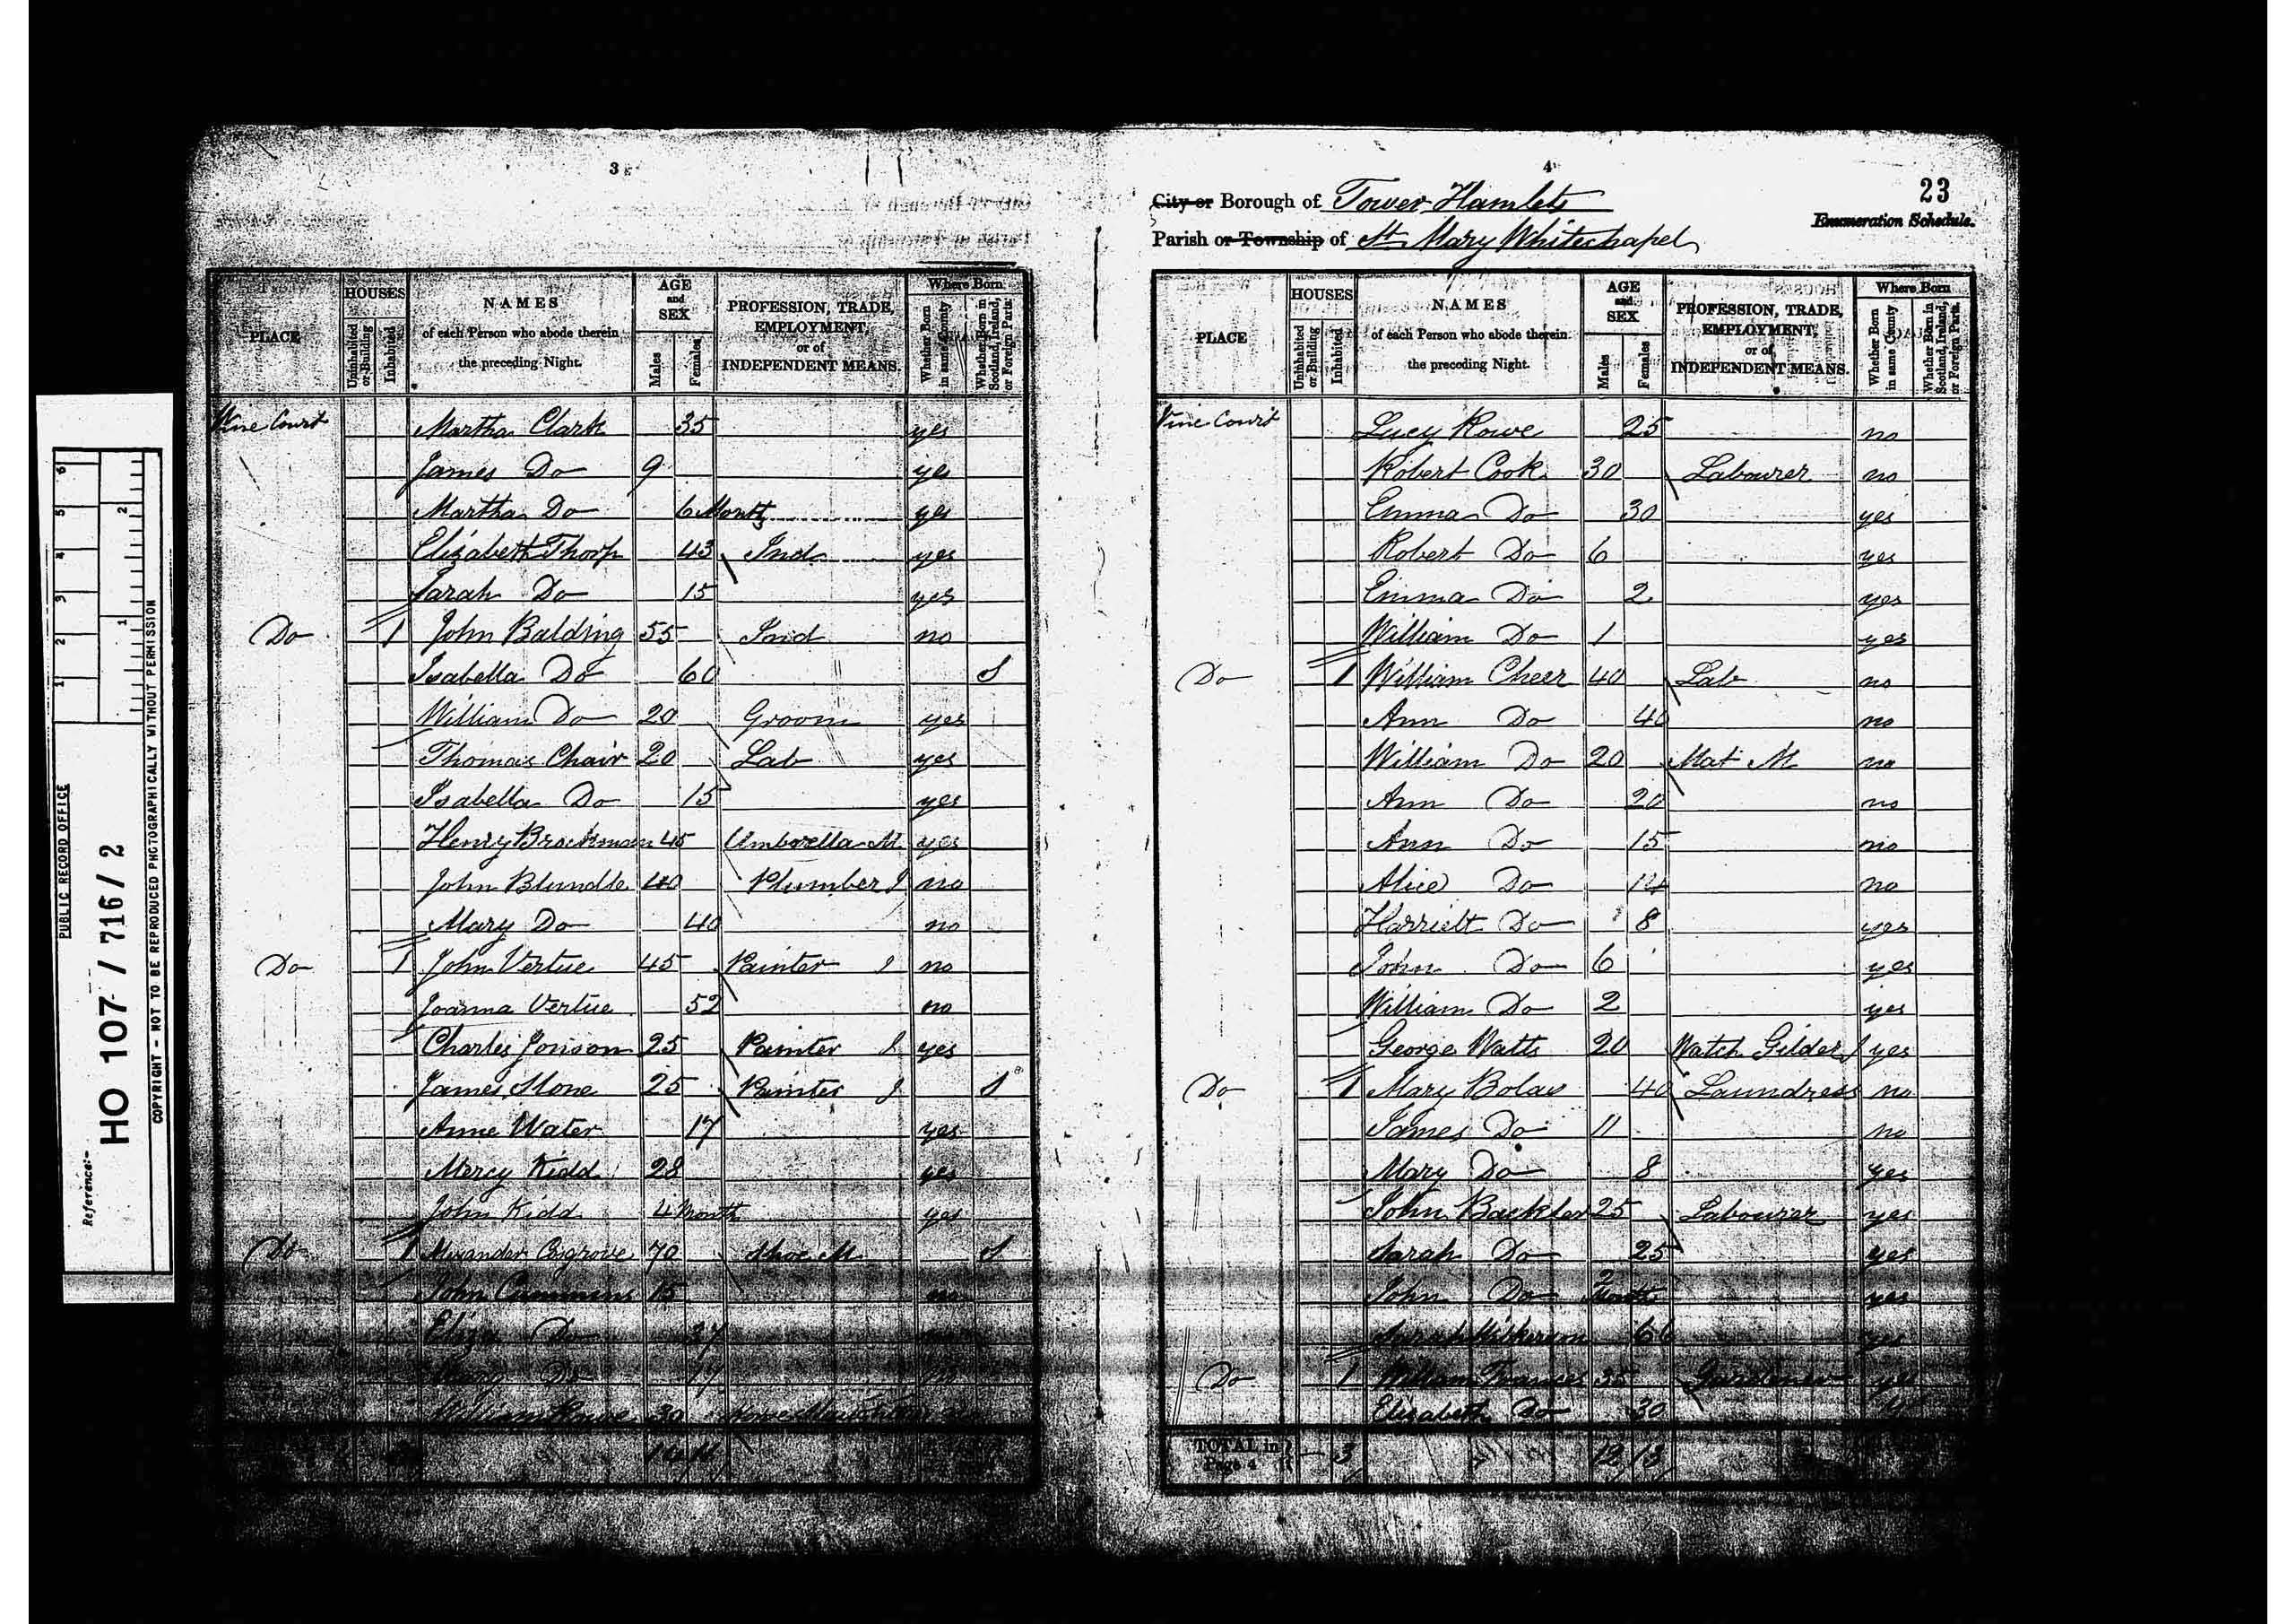 3
HOUSES
AGE and SEX
Where Born
PLACE
Uninhabited or Building
Inhabited
NAMES of each Person who abode therein the preceding Night.
Males
Females
PROFESSION, TRADE, EMPLOYMENT, or of INDEPENDENT MEANS.
Whether Born in same County
Whether Born in Scotland, Ireland, or Foreign Parts.
Vine Court Martha Clark 35 yes
James Do 9 yes
Martha Do 6 Months yes
Elizabeth Thorp 43 Ind yes
Sarah Do 15 yes
Do 1 John Balding 55 Ind no
Isabella Do 60 S
William Do 20 Groom yes
Thomas Chair 20 Lab yes
Isabella Do 15 yes
Henry Brockman 45 Umbrella M yes
John Blundle 40 Plumber J no
Mary Do 40 no
Do 1 John Vertue 45 Painter J no
Joanna Vertue 52 no
Charles Jonson 25 Painter J yes
James Stone 25 Painter J S
Anne Water 17 yes
Mercy Kidd 28 yes
John Kidd 4 Month yes
Do 1 Alexander Cosgrove 70 Shoe M S
John Cummins 15 no
Eliza Do 37
Mary Do 17
William Rowe 30
4
23
City or Borough of Tower Hamlets
Enumeration Schedule.
Parish or Township of St Mary Whitechapel
HOUSES
AGE and SEX
Where Born
PLACE
Uninhabited or Building
Inhabited
NAMES of each Person who abode therein the preceding Night.
Males
Females
PROFESSION, TRADE, EMPLOYMENT, or of INDEPENDENT MEANS.
Whether Born in same County
Whether Born in Scotland, Ireland, or Foreign Parts.
Vine Court Lucy Rowe 25 no
Robert Cook 30 Labourer no
Emma Do 30 yes
Robert Do 6 yes
Emma Do 2 yes
William Do 1 yes
Do 1 William Cheer 40 Lab no
Ann Do 40 no
William Do 20 Mat M no
Ann Do 20 no
Ann Do 15 no
Alice Do 14 no
Harriett Do 8 yes
John Do 6 yes
William Do 2 yes
George Watts 20 Watch Gilder J yes
Do 1 Mary Bolas 40 Laundress no
James Do 11 no
Mary Do 8 yes
John Backler 25 Labourer yes
Sarah Do 25 yes
John Do 2 Months yes
Sarah Wilkerson 60 yes
Do 1 William Frances 35 Gardener yes
Elizabeth Do 30
TOTAL in Page 4 — 3 12 13
PUBLIC RECORD OFFICE
1 2 3 4 5 6
1 2
Reference:-
HO 107 / 716 / 2
COPYRIGHT - NOT TO BE REPRODUCED PHOTOGRAPHICALLY WITHOUT PERMISSION